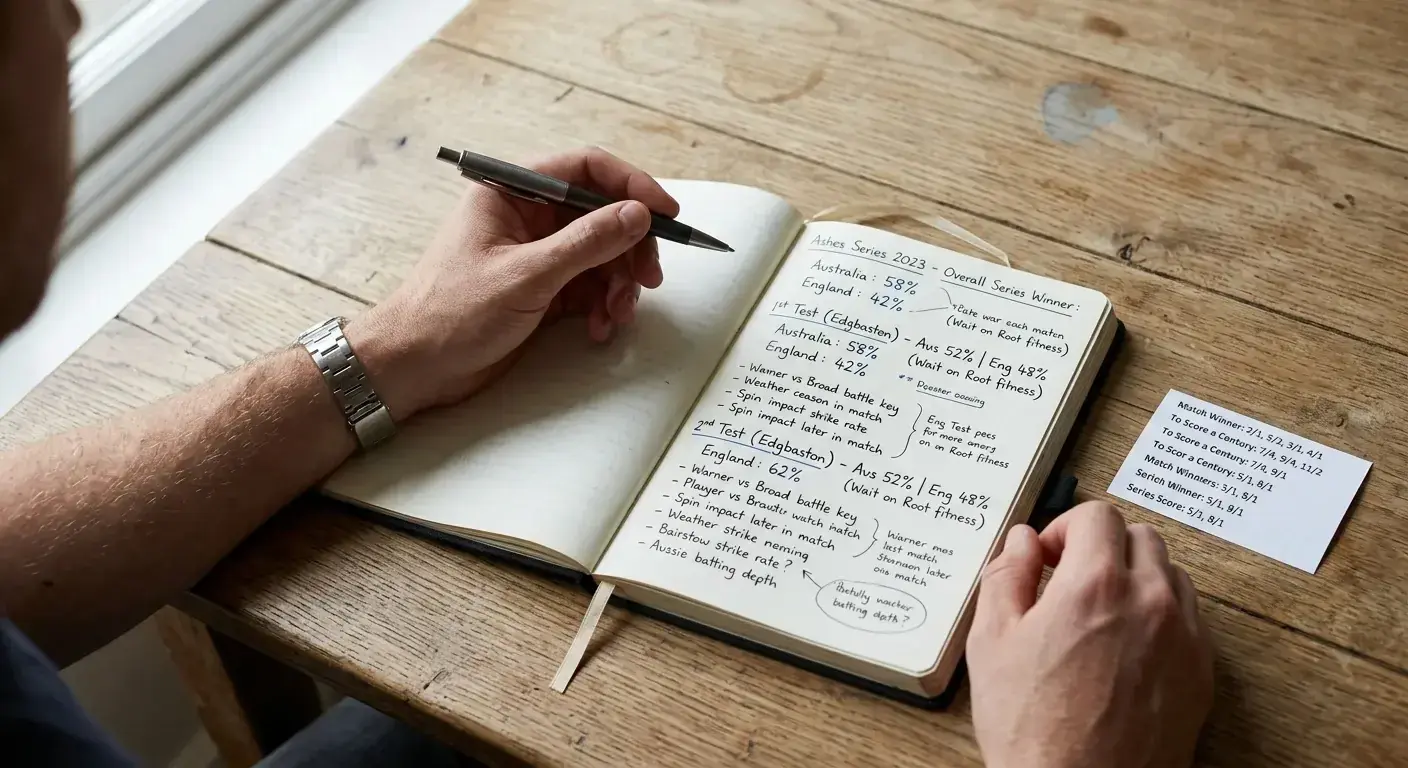 Ashes Series 2023 - Overall Series Winner:
Australia : 58%
England : 42%
Late war each match
(Wait on Root fitness)
1st Test (Edgbaston) - Aus 52% | Eng 48%
(Wait on Root fitness)
Australia : 58%
England : 42%
- Warner vs Broad battle key
- Weather ceason in match
- Spin impact strike rate
- Spin impact later in match
Eng Test pecs
for more anerg
on on Root fitness
2nd Test (Edgbaston) - Aus 52% | Eng 48%
(Wait on Root fitness)
England : 62%
- Warner vs Broad battle key
- Player vs watch match
- Spin impact later in match
- Weather strike neming
- Bairstow strike rate ?
- Aussie batting depth
Warner mos
last match
later
ons match
batting depth ?
Match Winner: 2/1, 5/2, 3/1, 4/1
To Score a Century: 7/4, 9/4, 11/2
To Score a Century: 7/4, 9/1
To Scor a Century: 5/1, 8/1
Match Winners: 3/1, 8/1
Serich Winner: 5/1, 9/1
Series Score: 5/1, 8/1